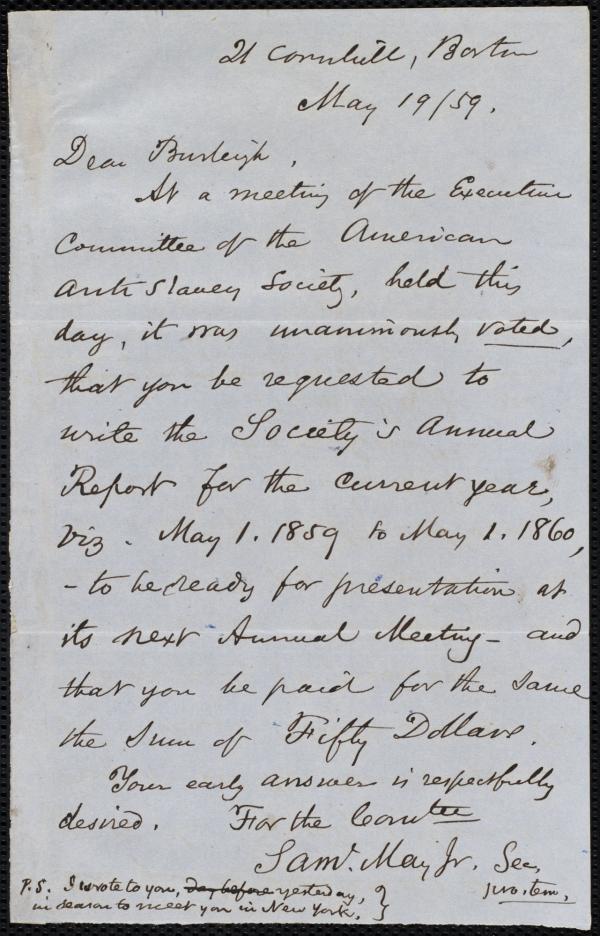 21 Cornhill, Boston
May 19/59.
Dear Burleigh,
At a meeting of the Executive
Committee of the American
Anti Slavery Society, held this
day, it was unanimously voted,
that you be requested to
write the Society's Annual
Report for the current year,
viz. May 1. 1859 to May 1. 1860,
- to be ready for presentation at
its next Annual Meeting - and
that you be paid for the same
the sum of Fifty Dollars.
Your early answer is respectfully
desired. For the Comtee
Saml. May Jr. Sec.
pro. tem.
P.S. I wrote to you, day before yesterday,
in season to meet you in New York.